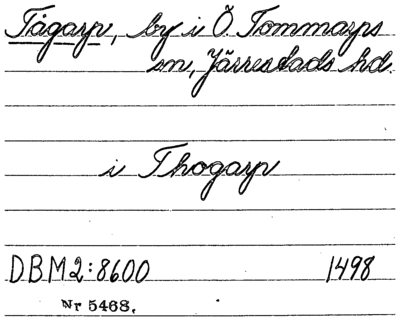 Tågarp, by i Ö. Tommarps
sn, Järrestads hd.
i Thogarp
DBM2:8600 1498
Nr 5468.